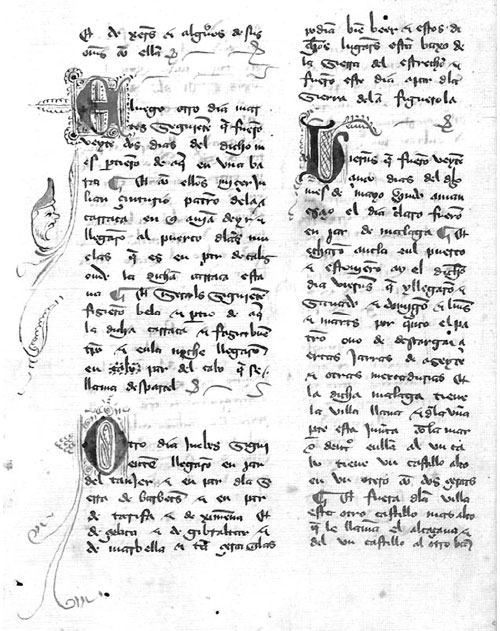 Et de xerés et algunos de sus
omes con ellos
E luego otro dia mar
tes seguiente que fueron
veynte dos dias del dicho m
es partieron de aqui en una bar
ca ¶ Et con ellos micer Ju
lian centurio patron de la
carraca en que avian de yr et
llegaron al puerto de las mu
elas que es en par de caliz
onde la dicha carraca esta
va ¶ Et miercoles seguiente
fizieron vela et partieron de aqui
la dicha carraca et fazia buen
tienpo et en la noche llegaron
en par del cabo que se
llama despartel
Otro dia jueves segui
ente llegaron en par
del tanjer et en par de la Si
erra de barberia et en par
de tarifa et de ximena et
de çebta et de gibraltar et
de marbella et
podian bien veer et estos di
chos lugares estan baxo de
la Sierra del estrecho et
fueron este dia a par de la
Sierra de la figuerola
Viernes que fueron veynte
dias del dicho
mes de mayo quando aman
esçio el dia claro fueron
en par de malaga ¶ Et
echaron ancla en el puerto
et estovieron ay el dicho
dia viernes que y llegaron et
Sabado et domingo et lunes
et martes por quanto el pa
tron ovo de descargar
ciertas jarras de azeyte
et otras mercadurias Et
la dicha malaga tiene
la villa llana et de la una
parte esta junta con la mar
dentro en ella al un ca
bo tiene un castillo alto
en un otero con dos cercas
¶ Et fuera de la villa
esta otro castillo mas alto
que le llaman el alcaçava et
del un castillo al otro